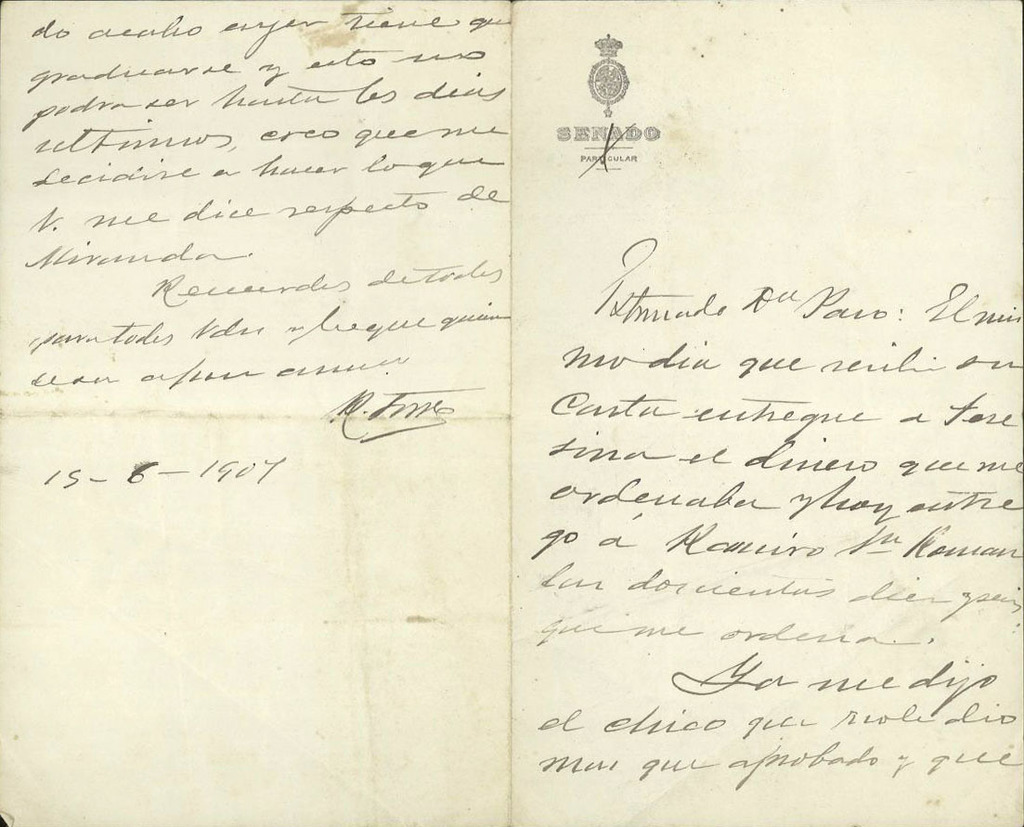 SENADO
PARTICULAR
Estimado Dn Paco: El mis
mo dia que recibi su
Carta entregue a Tere
sina el dinero que me
ordenaba y hoy entre
go á Ramiro Sn Roman
las doscientas diez y seis
que me ordena.
Ya me dijo
el chico que no le dio
mas que aprobado y que
do acabo ayer tiene que
graduarse y esto no
podra ser hasta los dias
ultimos, creo que me
decidire a hacer lo que
V. me dice respecto de
Miranda.
Recuerdos de todos
para todos Vdes y
R. Torres
15-6-1907